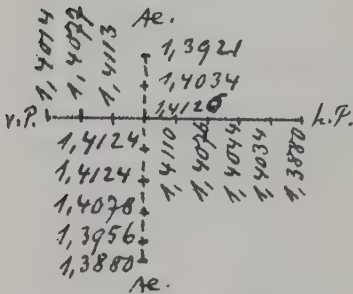 Ae.
1,4014
1,4077
1,4113
1,3921
1,4034
1,4126
v.P.
h.P.
1,4124
1,4124
1,4078
1,3956
1,3880
1,4110
1,4076
1,4044
1,4034
1,3880
Ae.